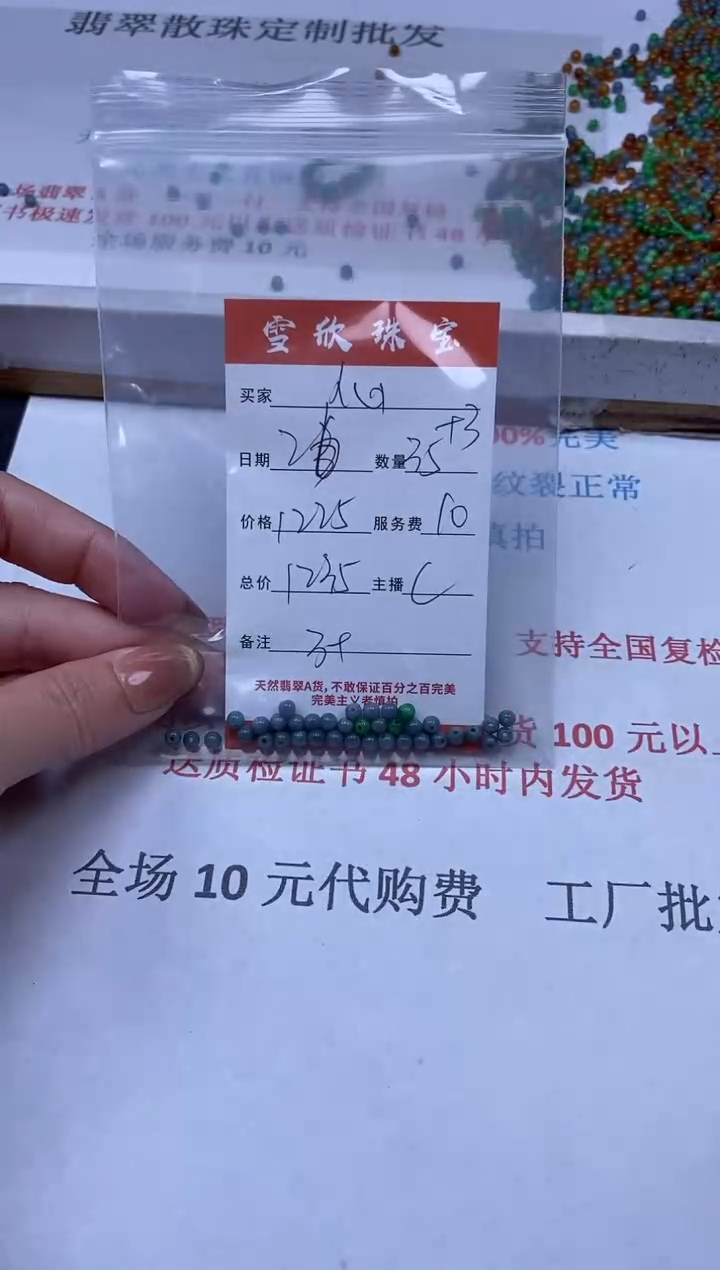 翡翠散珠定制批发
场翡翠
书极速发货100元以上送质检证书48小
全场服务费10元
雪欣珠宝
买家
日期 数量35+3
价格1225 服务费10
总价1235 主播
备注
天然翡翠A货,不敢保证百分之百完美
完美主义者慎拍
00%完美
纹裂正常
真拍
支持全国复检
货100元以上
送质检证书48小时内发货
全场10元代购费 工厂批